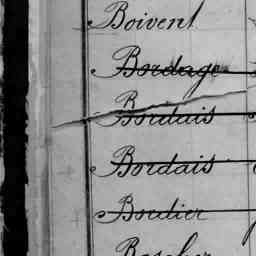 Boivent
Bordage
Bordais
Bordais
Bordier